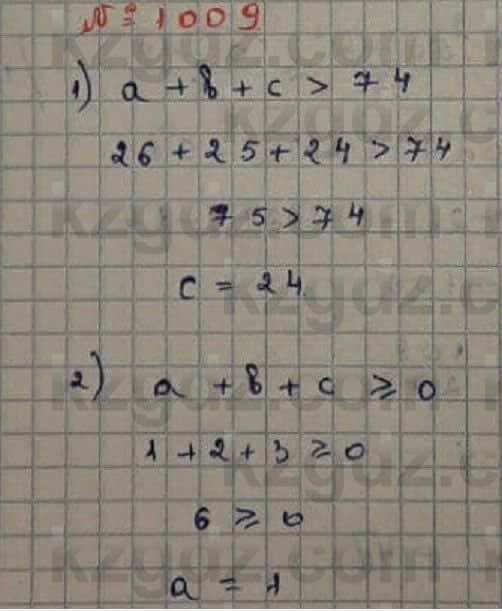 № 1009
1) a + b + c > 74
26 + 25 + 24 > 74
75 > 74
c = 24
2) a + b + c ≥ 0
1 + 2 + 3 ≥ 0
6 ≥ 0
a = 1
kzgdz.com